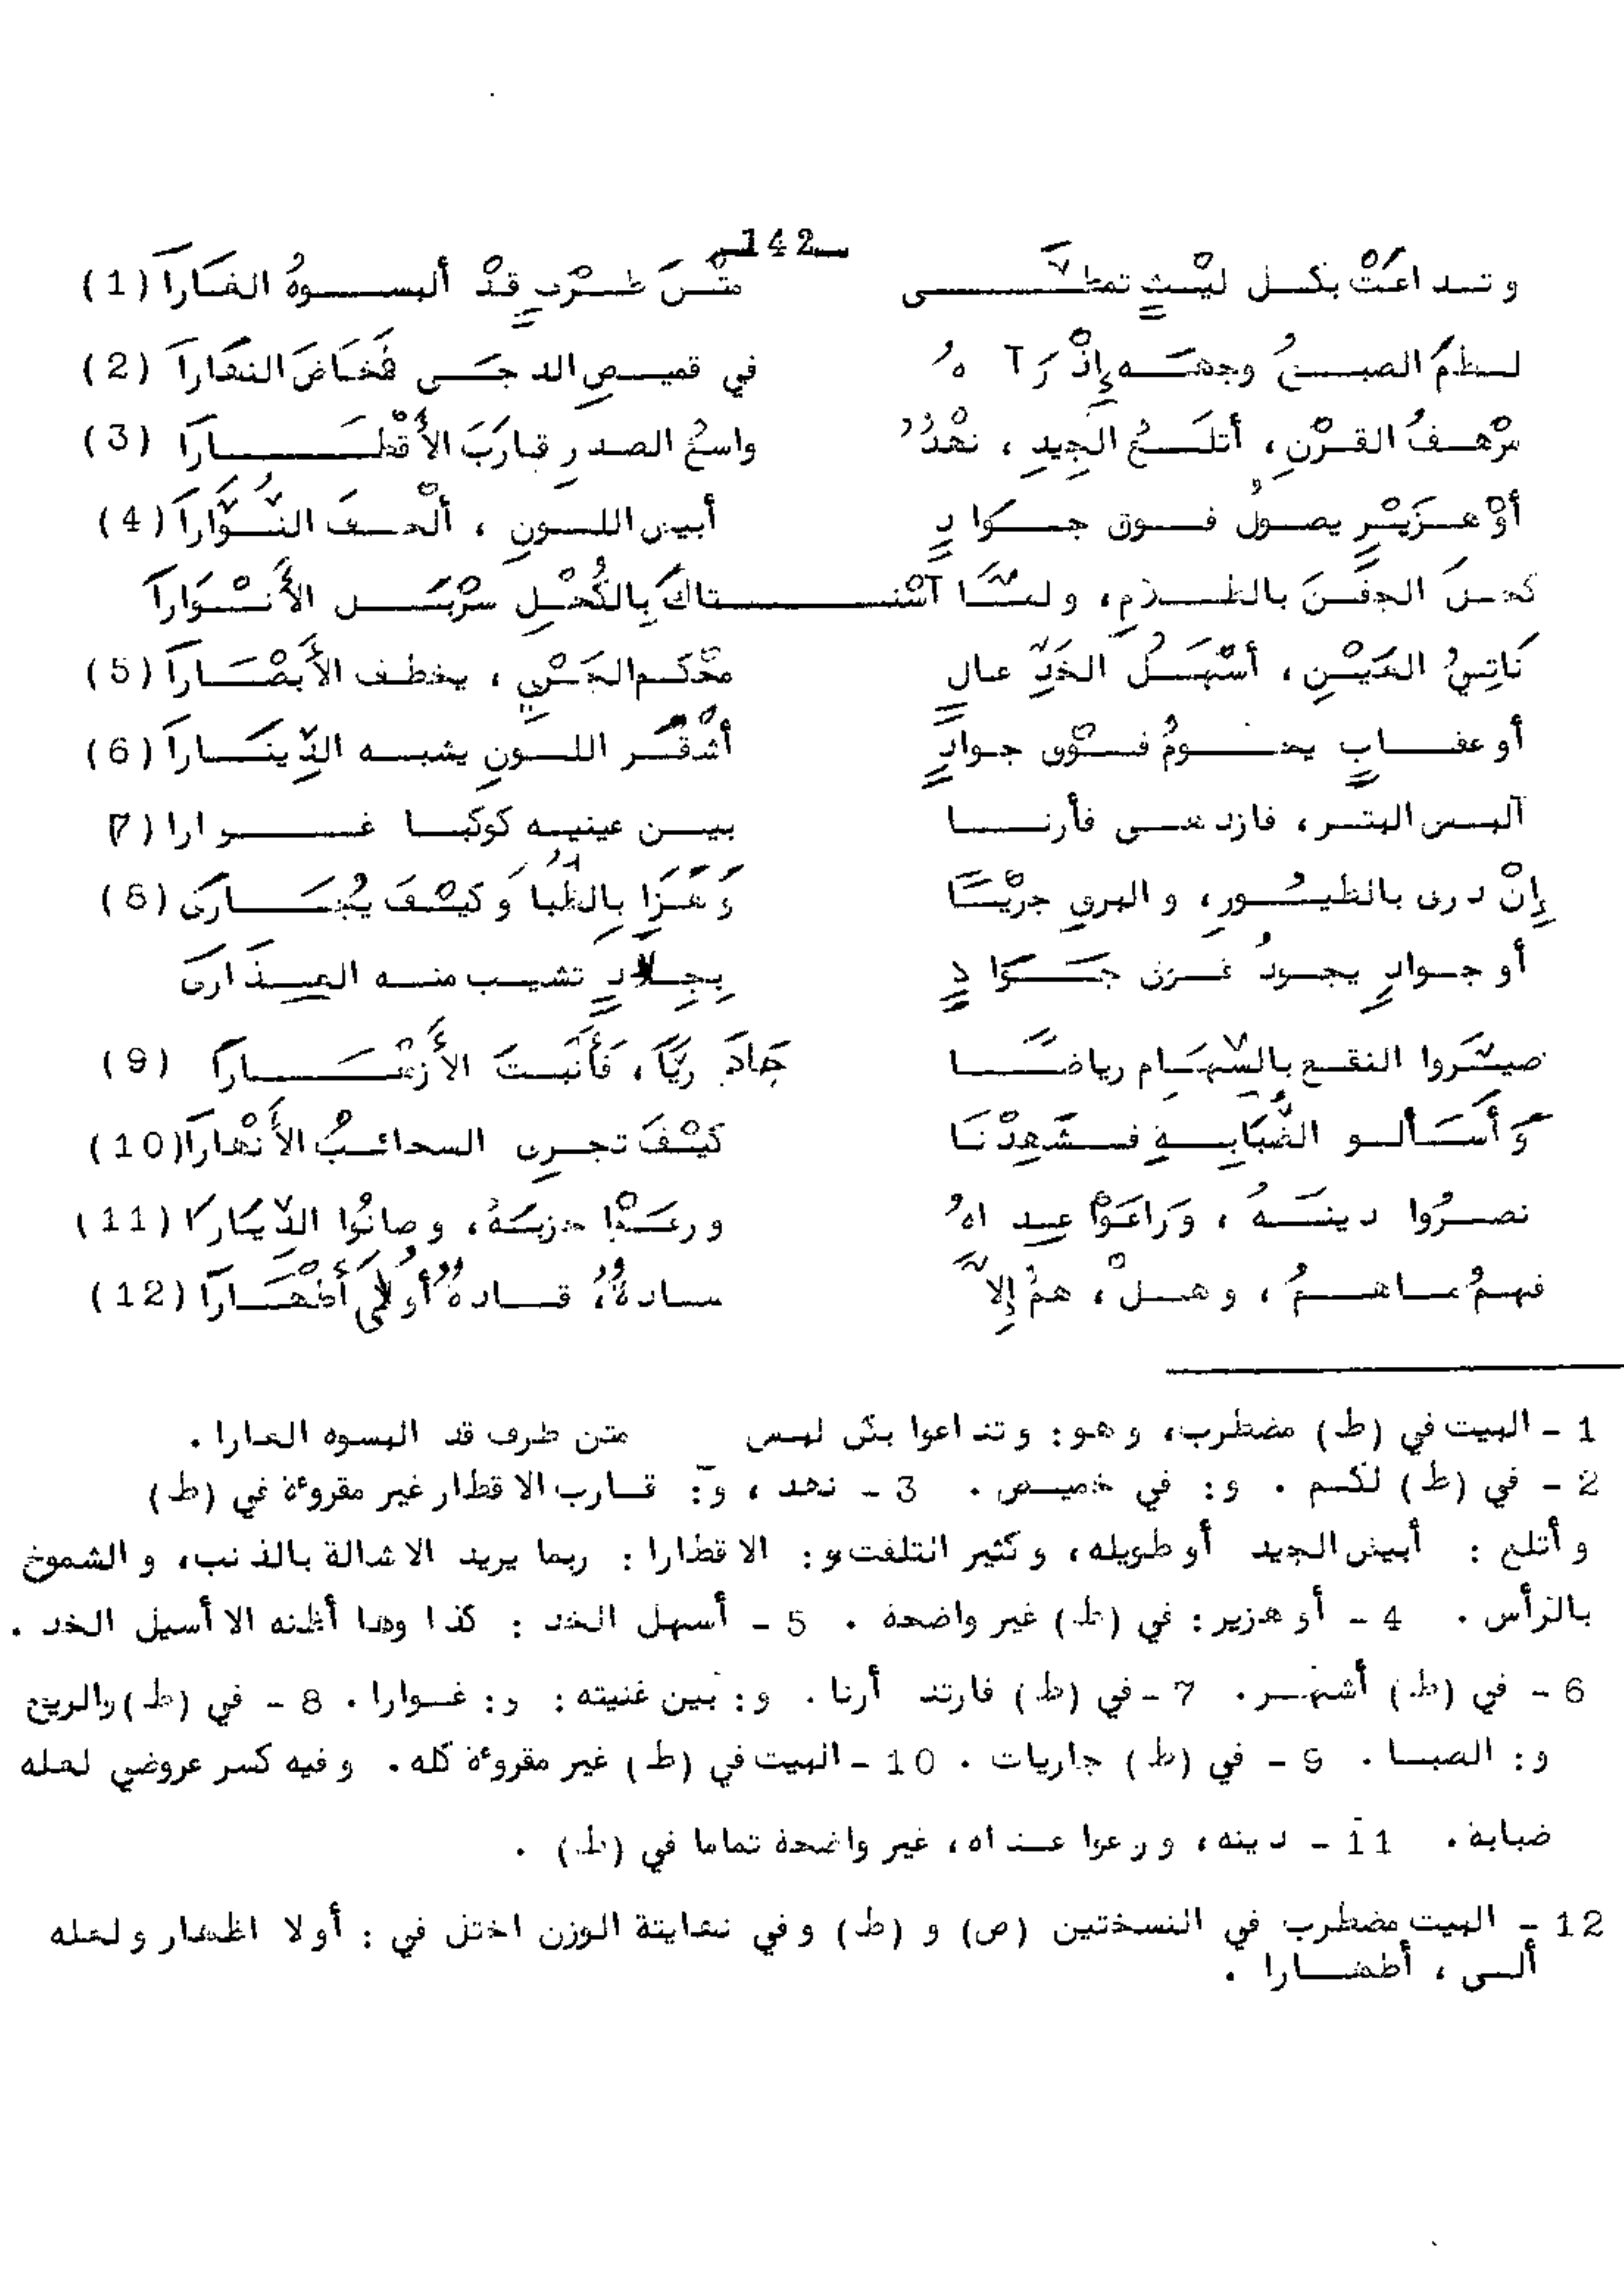 -142-
وتداعَتْ بكل ليْثٍ تمطَّى متْنَ طرْبٍ قدْ ألبسوهُ الغَارَا (1)
لطمَ الصبحُ وجهَه إِذْ رَآهُ في قميصِ الدجَى فَخَاضَ النهَارَا (2)
مرْهفُ القرْنِ، أتلَعُ الجِيدِ، نهْدُ واسعُ الصدرِ قارَبَ الأَقْطَارَا (3)
أوْ هزَبْرٍ يصولُ فوق جوادٍ أبيض اللونِ، ألْحفَ النُّوَّارَا (4)
كحلَ الجفْنَ بالظلامِ، ولمَّا آشْتاكَ بِالكُحْلِ سرْبَل الأَنْوَارَا
نَاتِئُ العَيْنِ، أسْهَلُ الخَدِّ عالٍ محْكم الجَرْيِ، يخطف الأَبْصَارَا (5)
أو عقابٍ يحومُ فوْق جوادٍ أشْقَر اللونِ يشبه الدِّينَارَا (6)
ألبس البتر، فازدهى فأرنا بين عينيه كوكبا غوارا (7)
إِنْ درى بالطيُورِ، والبرقِ جرْيًا وَهَزَا بِالظُّبَا وَكيْفَ يُجَارَى (8)
أو جوادٍ يجودُ فوق جَوَادٍ بِجِلاَدٍ تشيب منه العِذَارَى
صيَّروا النقع بالسِّهَام رياضًا جَادَ رَيًّا، فَأَنْبَتَ الأَزْهَارَا (9)
وَأَسَألو الضَّبَابِةِ فشَهِدْنَا كيْفَ تجرِى السحائبُ الأَنْهَارَا (10)
نصرُوا دينَهُ، وَرَاعَوْا عداهُ ورعَوْا حزبَهُ، وصانُوا الدِّيَارَا (11)
فهمُ ماهمُ، وهلْ، همْ إِلاَّ سادةٌ، قادةٌ أُولَى أَطْهَارَا (12)
1 - البيت في (ط) مضطرب، وهو: وتداعوا بكل ليس متن طرف قد البسوه العارا.
2 - في (ط) لكم. و: في خميص. 3 - نهد، و: قارب الاقطار غير مقروءة في (ط)
وأتلع : أبيض الجيد أو طويله، وكثير التلفت و: الاقطارا : ربما يريد الاشالة بالذنب، والشموخ
بالرأس. 4 - أو هزبر: في (ط) غير واضحة. 5 - أسهل الخد : كذا وما أظنه الا أسيل الخد.
6 - في (ط) أشهر. 7 - في (ط) فارتد أرنا. و: بين غنيته: و: غوارا. 8 - في (ط) والريح
و: الصبا. 9 - في (ط) جاريات. 10 - البيت في (ط) غير مقروءة كله. وفيه كسر عروضي لعله
ضبابة. 11 - دينه، ورعوا عداه، غير واضحة تماما في (ط).
12 - البيت مضطرب في النسختين (ص) و (ط) وفي نهايتة الوزن اختل في : أولا اظهار ولعله
ألى، أطهارا.